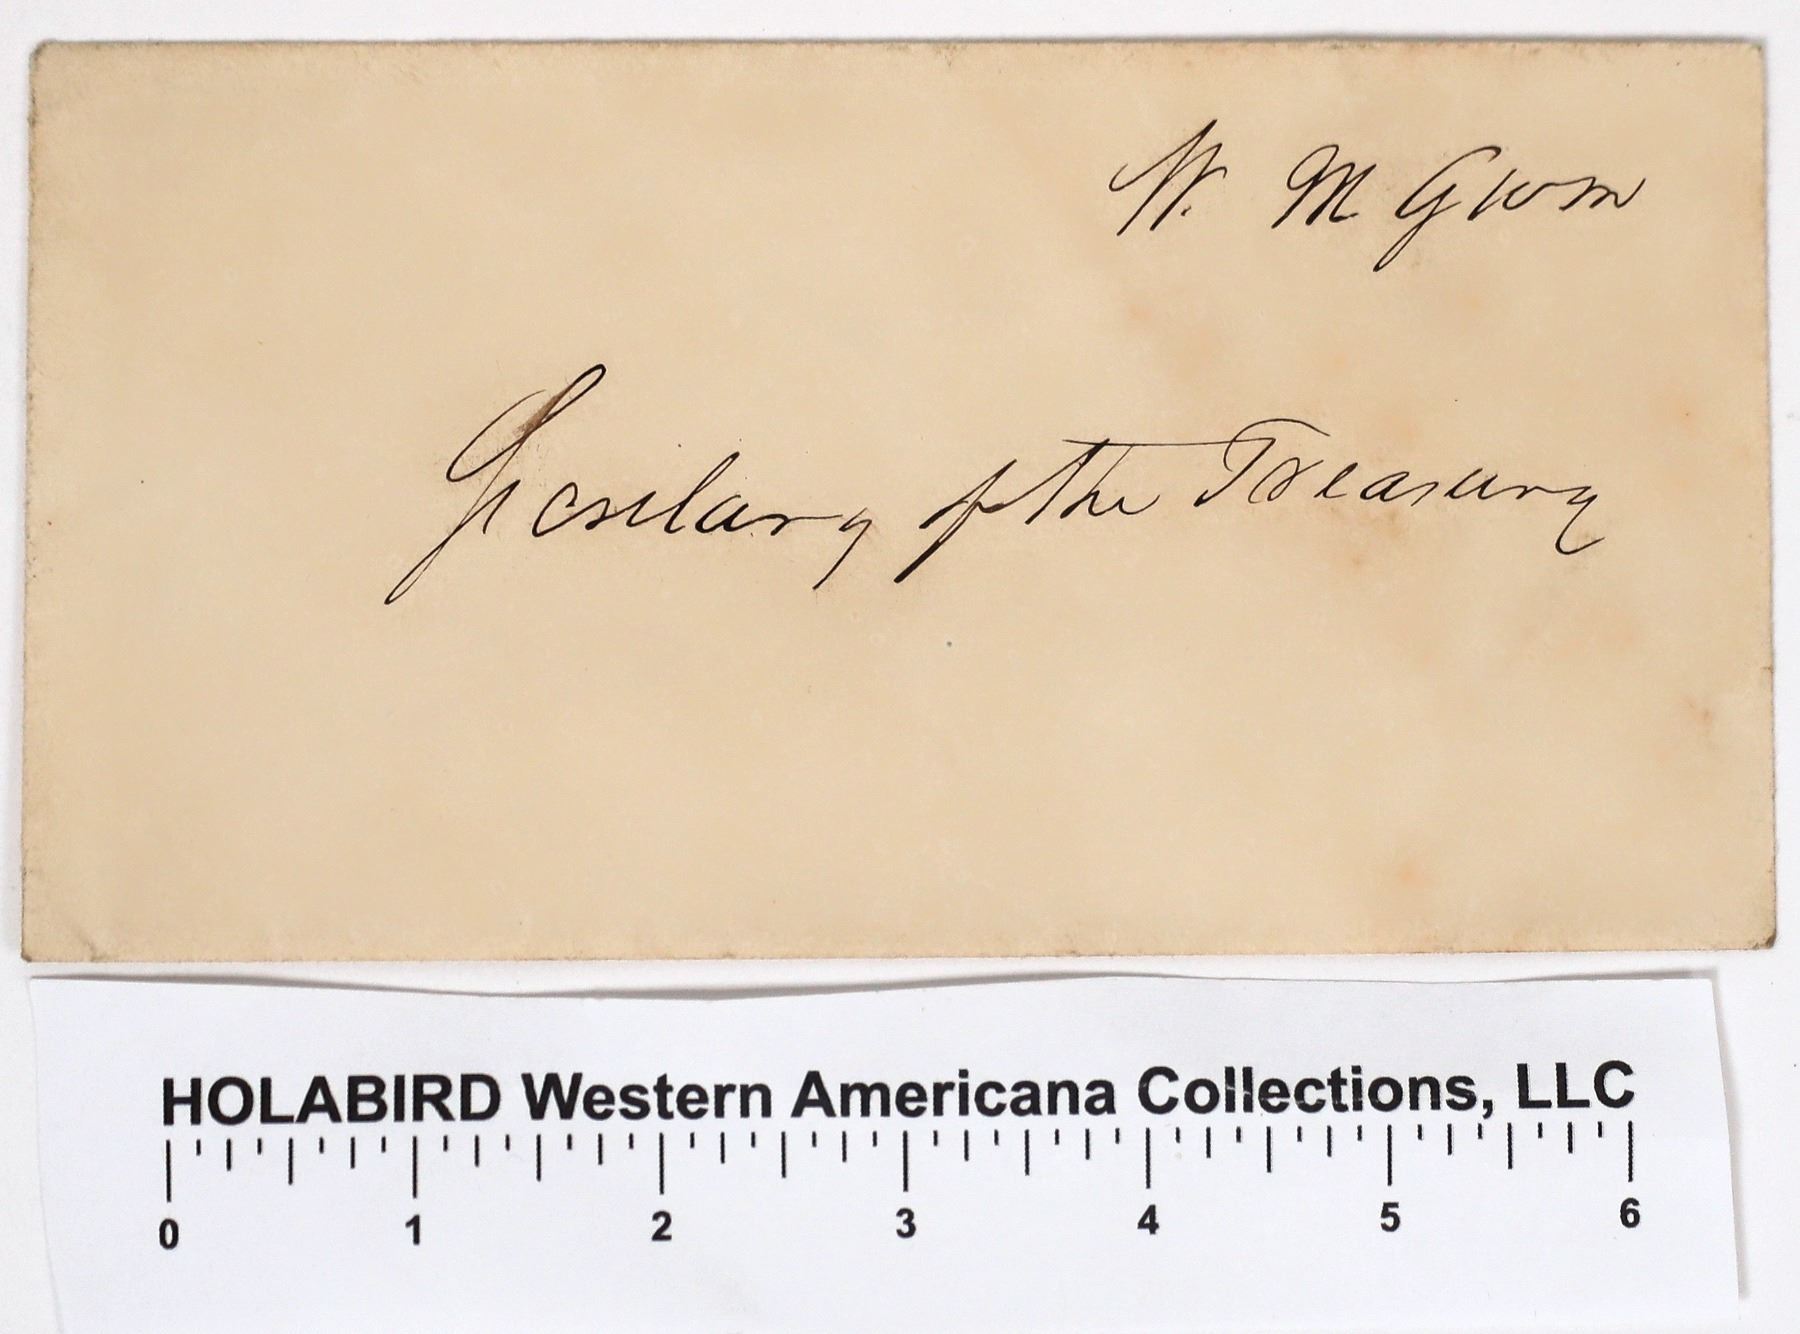 W. M Gwin
Secretary of the Treasury
HOLABIRD Western Americana Collections, LLC
0 1 2 3 4 5 6